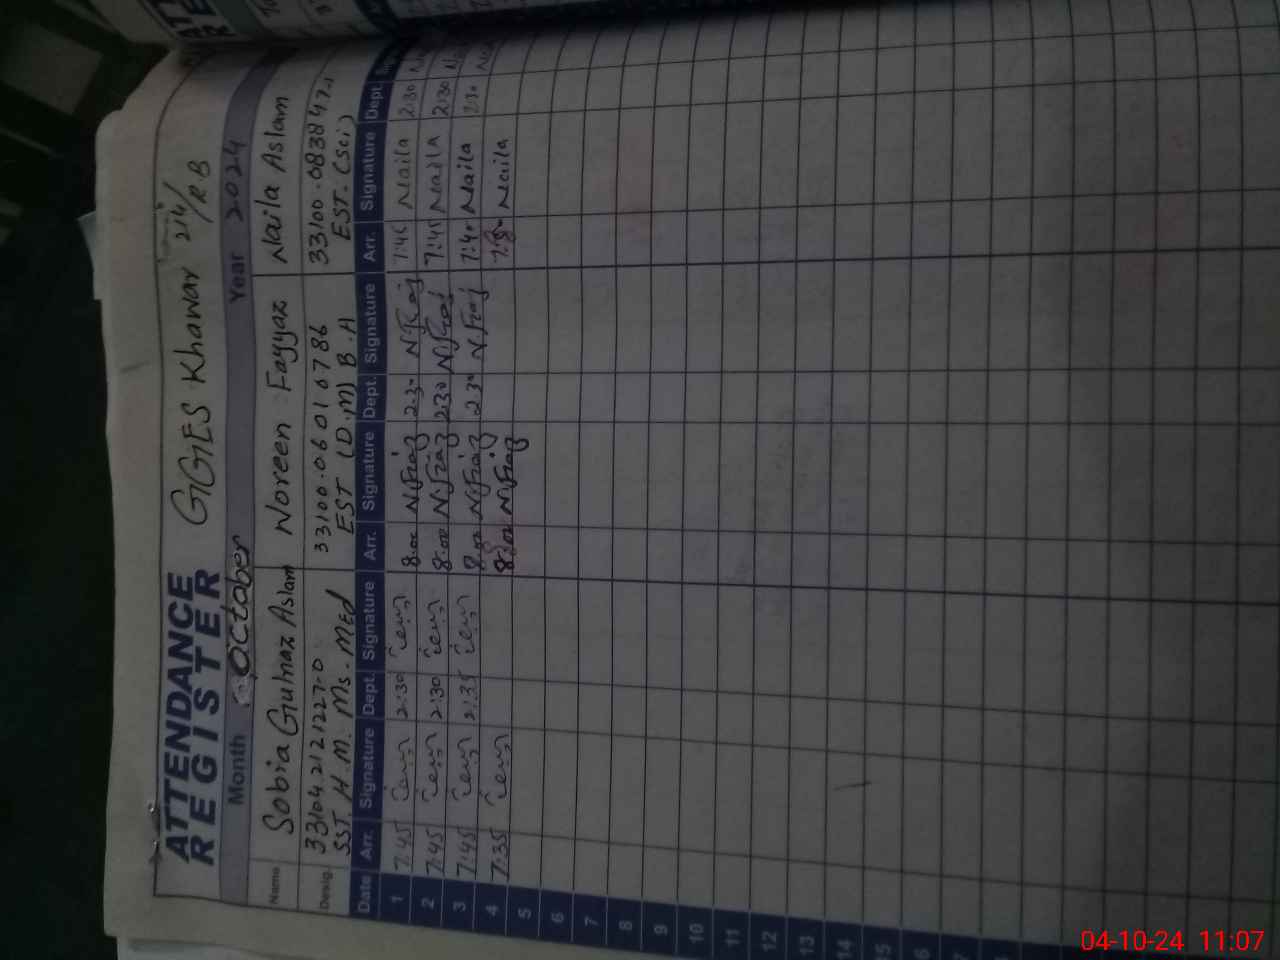 ATTENDANCE REGISTER
GGES Khawar 214/RB
Month October Year 2024
Name Sobia Gulnaz Aslam Noreen Fayyaz Naila Aslam
Desig. 33104.2121227-0 33100.06016786 33100.0838472
SST. H.M. Ms. MEd EST (D.M) B.A EST. (Sci)
Date Arr. Signature Dept. Signature Arr. Signature Dept. Signature Arr. Signature Dept.
1 7:45 2:30 8:00 N.Fiaz 2:30 N.Fiaz 7:45 Naila 2:30
2 7:45 2:30 8:00 N.Fiaz 2:30 N.Fiaz 7:45 Naila 2:30
3 7:45 2:35 8:00 N.Fiaz 2:30 N.Fiaz 7:45 Naila 2:30
4 7:35 8:00 N.Fiaz Naila
5
6
7
8
9
10
11
12
13
14
15
04-10-24 11:07